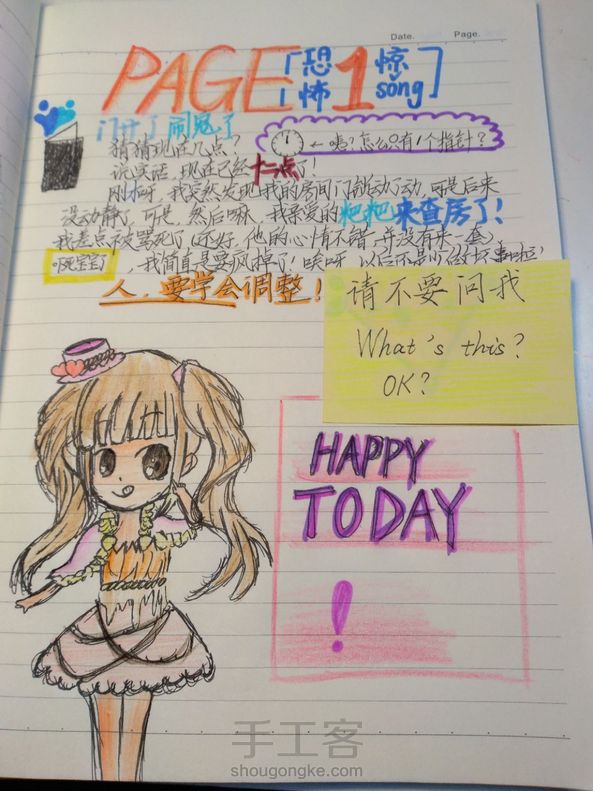 Date. Page.
PAGE「恐怖1惊sǒng」
门开了 闹鬼了
猜猜现在几点? ←咦?怎么只有1个指针?
说实话,现在已经十二点了!
刚才呀,我突然发现我的房间门动了动,可是后来
没动静了,可是,然后嘛,我亲爱的粑粑来查房了!
我差点被骂死了(还好,他的心情不错,并没有来一套)
吓死宝宝了,我简直是要疯掉了!唉呀,以后还是少
人,要学会调整!
请不要问我
What's this?
OK?
HAPPY
TODAY
!
手工客
shougongke.com